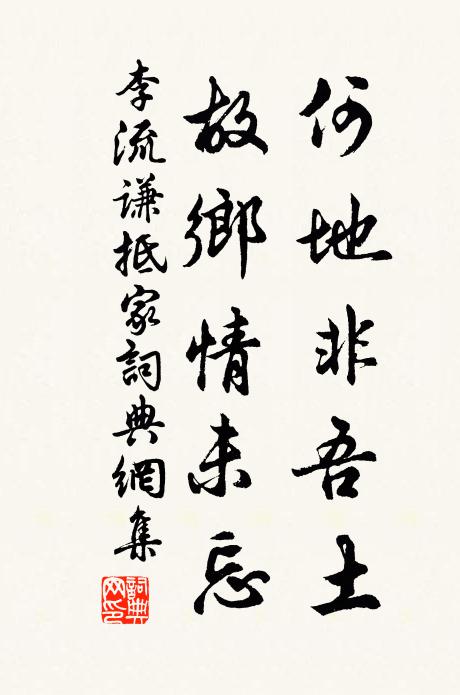 何地非吾土
故鄉情未忘
李流謙抵家詞典網集
詞典網印